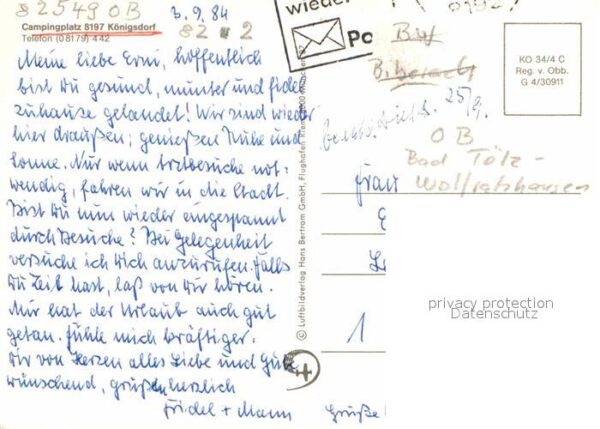 82549 OB
3.9.84
Campingplatz 8197 Königsdorf
Telefon (08179) 442
82 2
Meine liebe Erni, hoffentlich
bist Du gesund, munter und fidel
zuhause gelandet! Wir sind wieder
hier draußen; genießen Ruhe und
Sonne. Nur wenn Arztbesuche not-
wendig, fahren wir in die Stadt.
Bist Du nun wieder eingespannt
durch Besuche? Bei Gelegenheit
versuche ich Dich anzurufen. Falls
Du Zeit hast, laß von Dir hören.
Mir hat der Urlaub auch gut
getan. Fühle mich kräftiger.
Dir von Herzen alles Liebe und Gute
wünschend, grüßen herzlich
Fridel + Mann
Grüße
© Luftbildverlag Hans Bertram GmbH, Flughafen Riem, 8000 München 87
wieder
Po
KO 34/4 C
Reg. v. Obb.
G 4/30911
25/9.
OB
Bad Tölz-
Wolfratshausen
Frau
1
privacy protection
Datenschutz